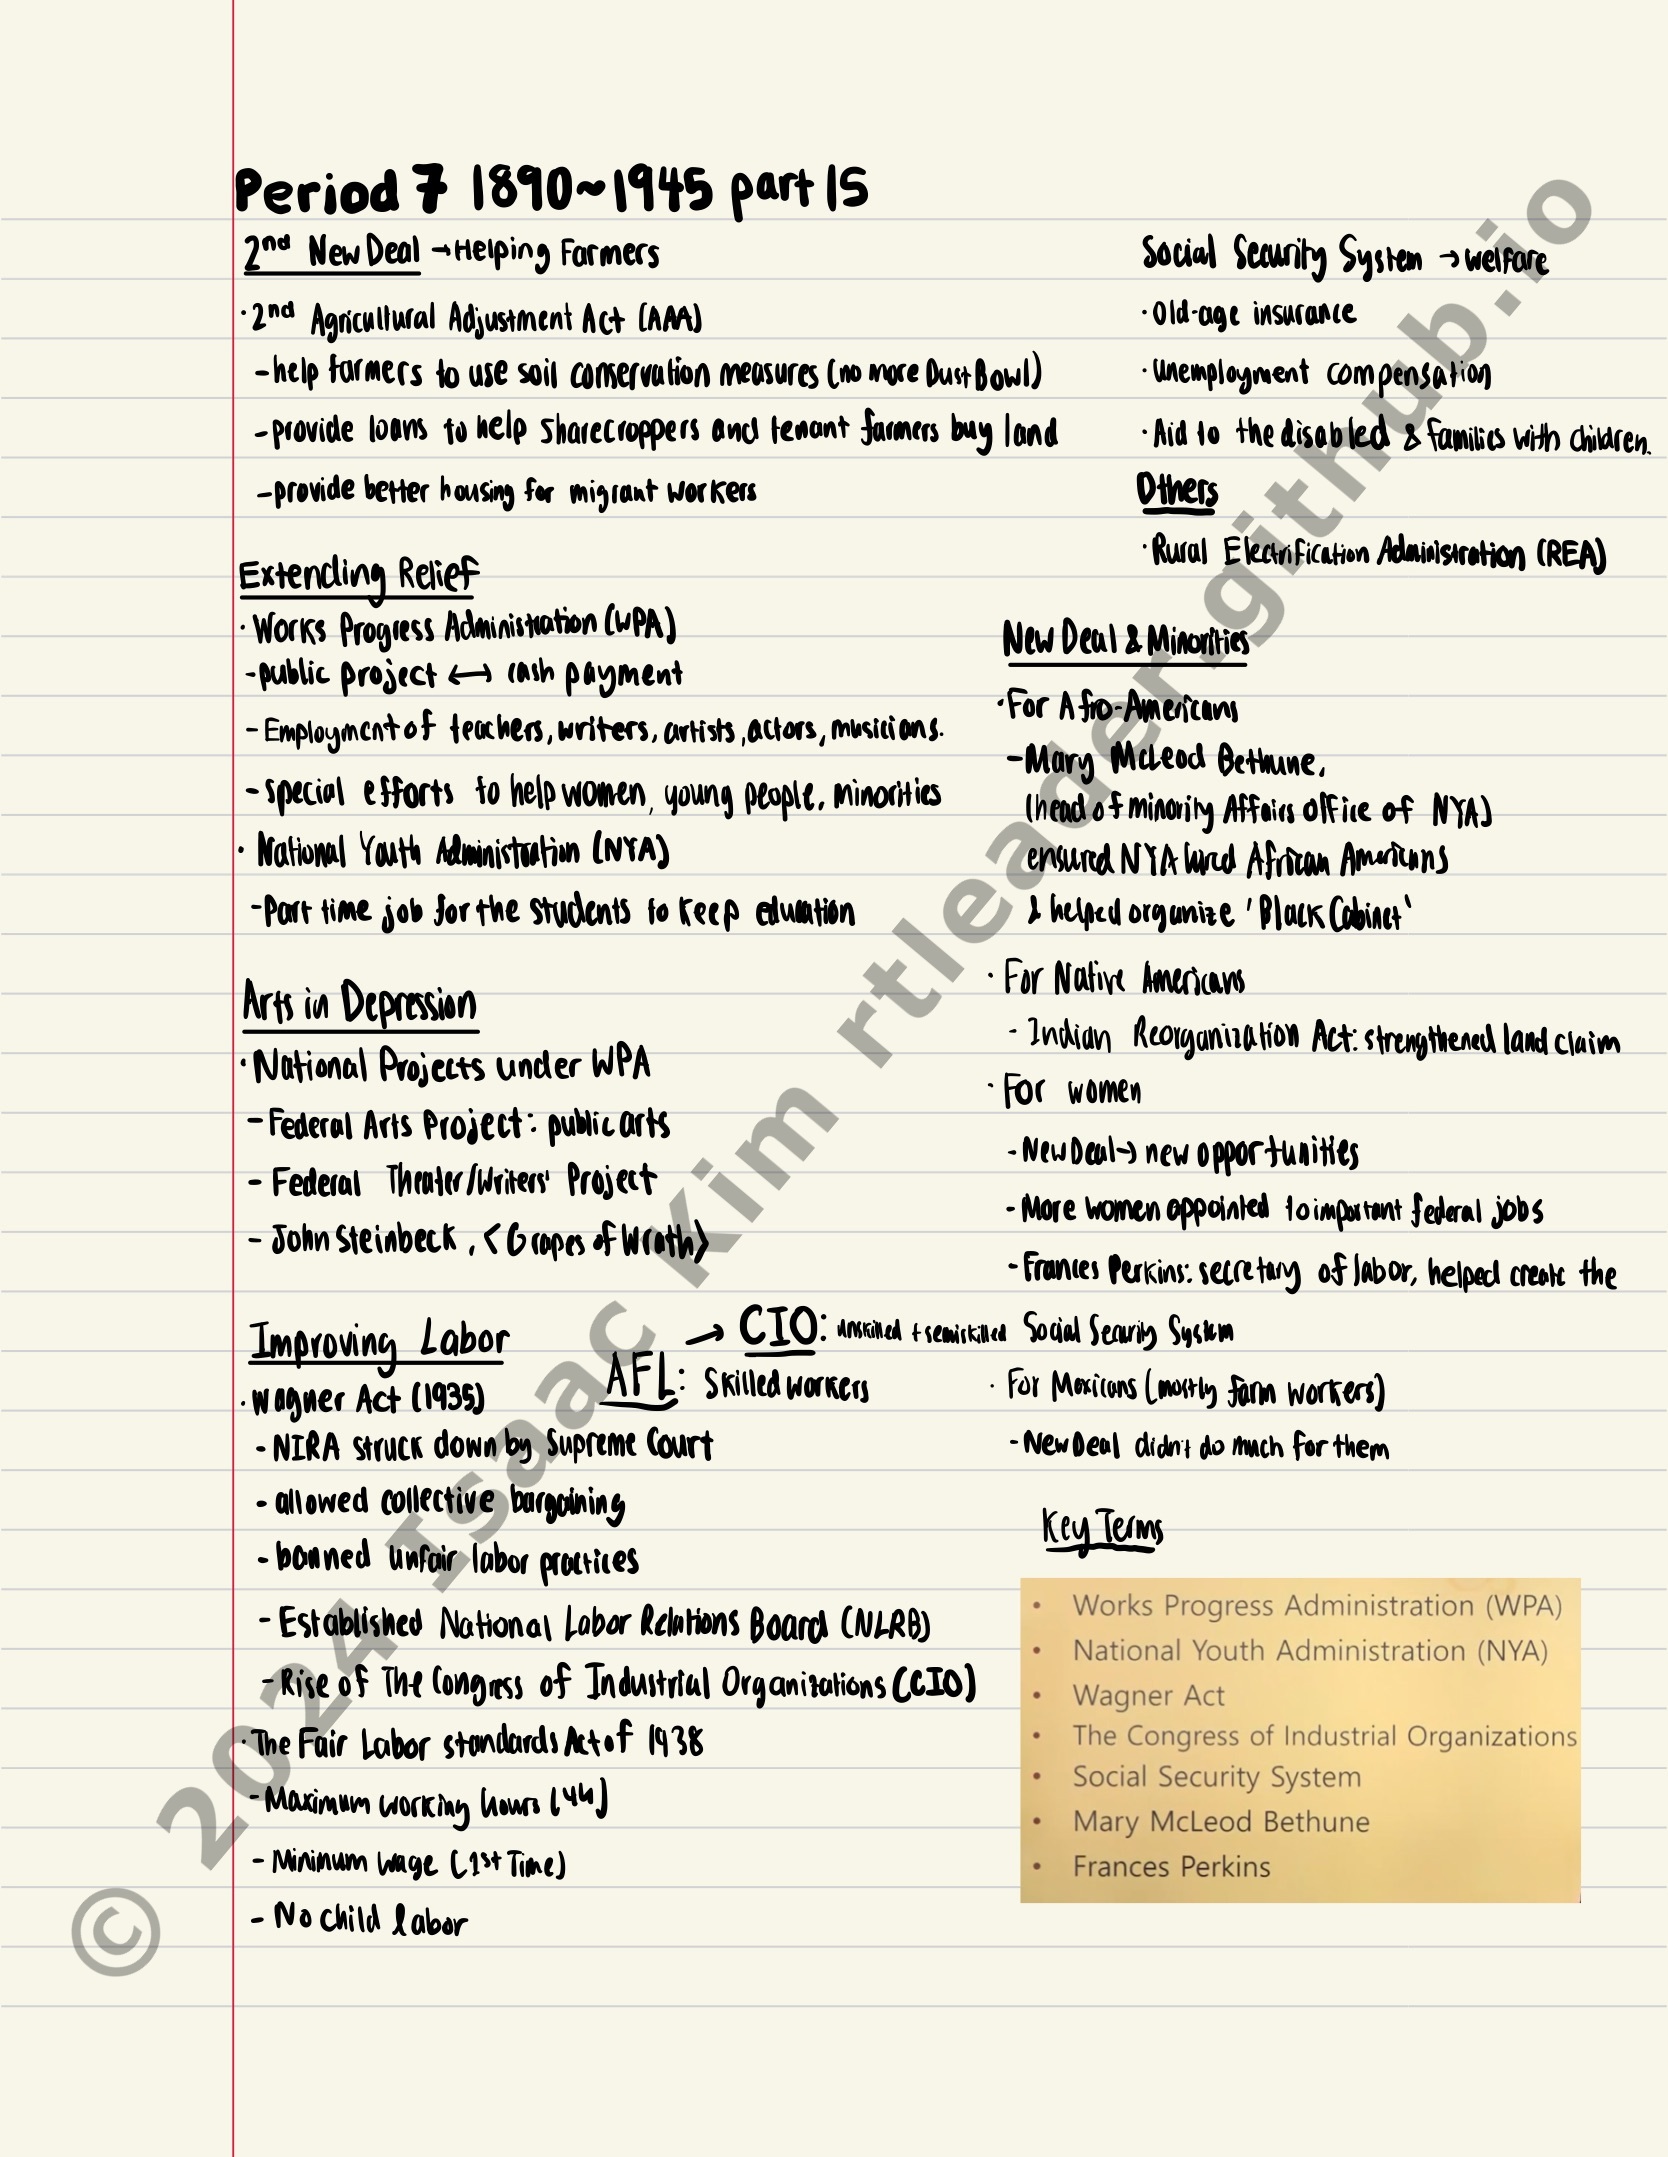 Period 7 1890~1945 part 15
2nd New Deal → Helping Farmers
· 2nd Agricultural Adjustment Act (AAA)
- help farmers to use soil conservation measures (no more Dust Bowl)
- provide loans to help sharecroppers and tenant farmers buy land
- provide better housing for migrant workers
Extending Relief
· Works Progress Administration (WPA)
- public project ↔ cash payment
- Employment of teachers, writers, artists, actors, musicians.
- special efforts to help women, young people, minorities
· National Youth Administration (NYA)
- Part time job for the students to keep education
Arts in Depression
· National Projects under WPA
- Federal Arts Project: public arts
- Federal Theater/Writers' Project
- John Steinbeck, <Grapes of Wrath>
Improving Labor
→ CIO: unskilled + semiskilled
AFL: Skilled workers
· Wagner Act (1935)
- NIRA struck down by Supreme Court
- allowed collective bargaining
- banned unfair labor practices
- Established National Labor Relations Board (NLRB)
- Rise of The Congress of Industrial Organizations (CIO)
· The Fair Labor standards Act of 1938
- Maximum working hours (44)
- Mininum wage (1st Time)
- No child labor
Social Security System → welfare
· Old-age insurance
· Unemployment compensation
· Aid to the disabled & families with children.
Others
· Rural Electrification Administration (REA)
New Deal & Minorities
· For Afro-Americans
- Mary McLeod Bethune,
(head of minority Affairs office of NYA)
ensured NYA hired African Americans
& helped organize 'Black Cabinet'
· For Native Americans
- Indian Reorganization Act: strengthened land claim
· For women
- New Deal → new opportunities
- More women appointed to important federal jobs
- Frances Perkins: secretary of labor, helped create the
Social Security System
· For Mexicans (mostly farm workers)
- New Deal didn't do much for them
Key Terms
• Works Progress Administration (WPA)
• National Youth Administration (NYA)
• Wagner Act
• The Congress of Industrial Organizations
• Social Security System
• Mary McLeod Bethune
• Frances Perkins
© 2024 Isaac Kim rtleader.github.io